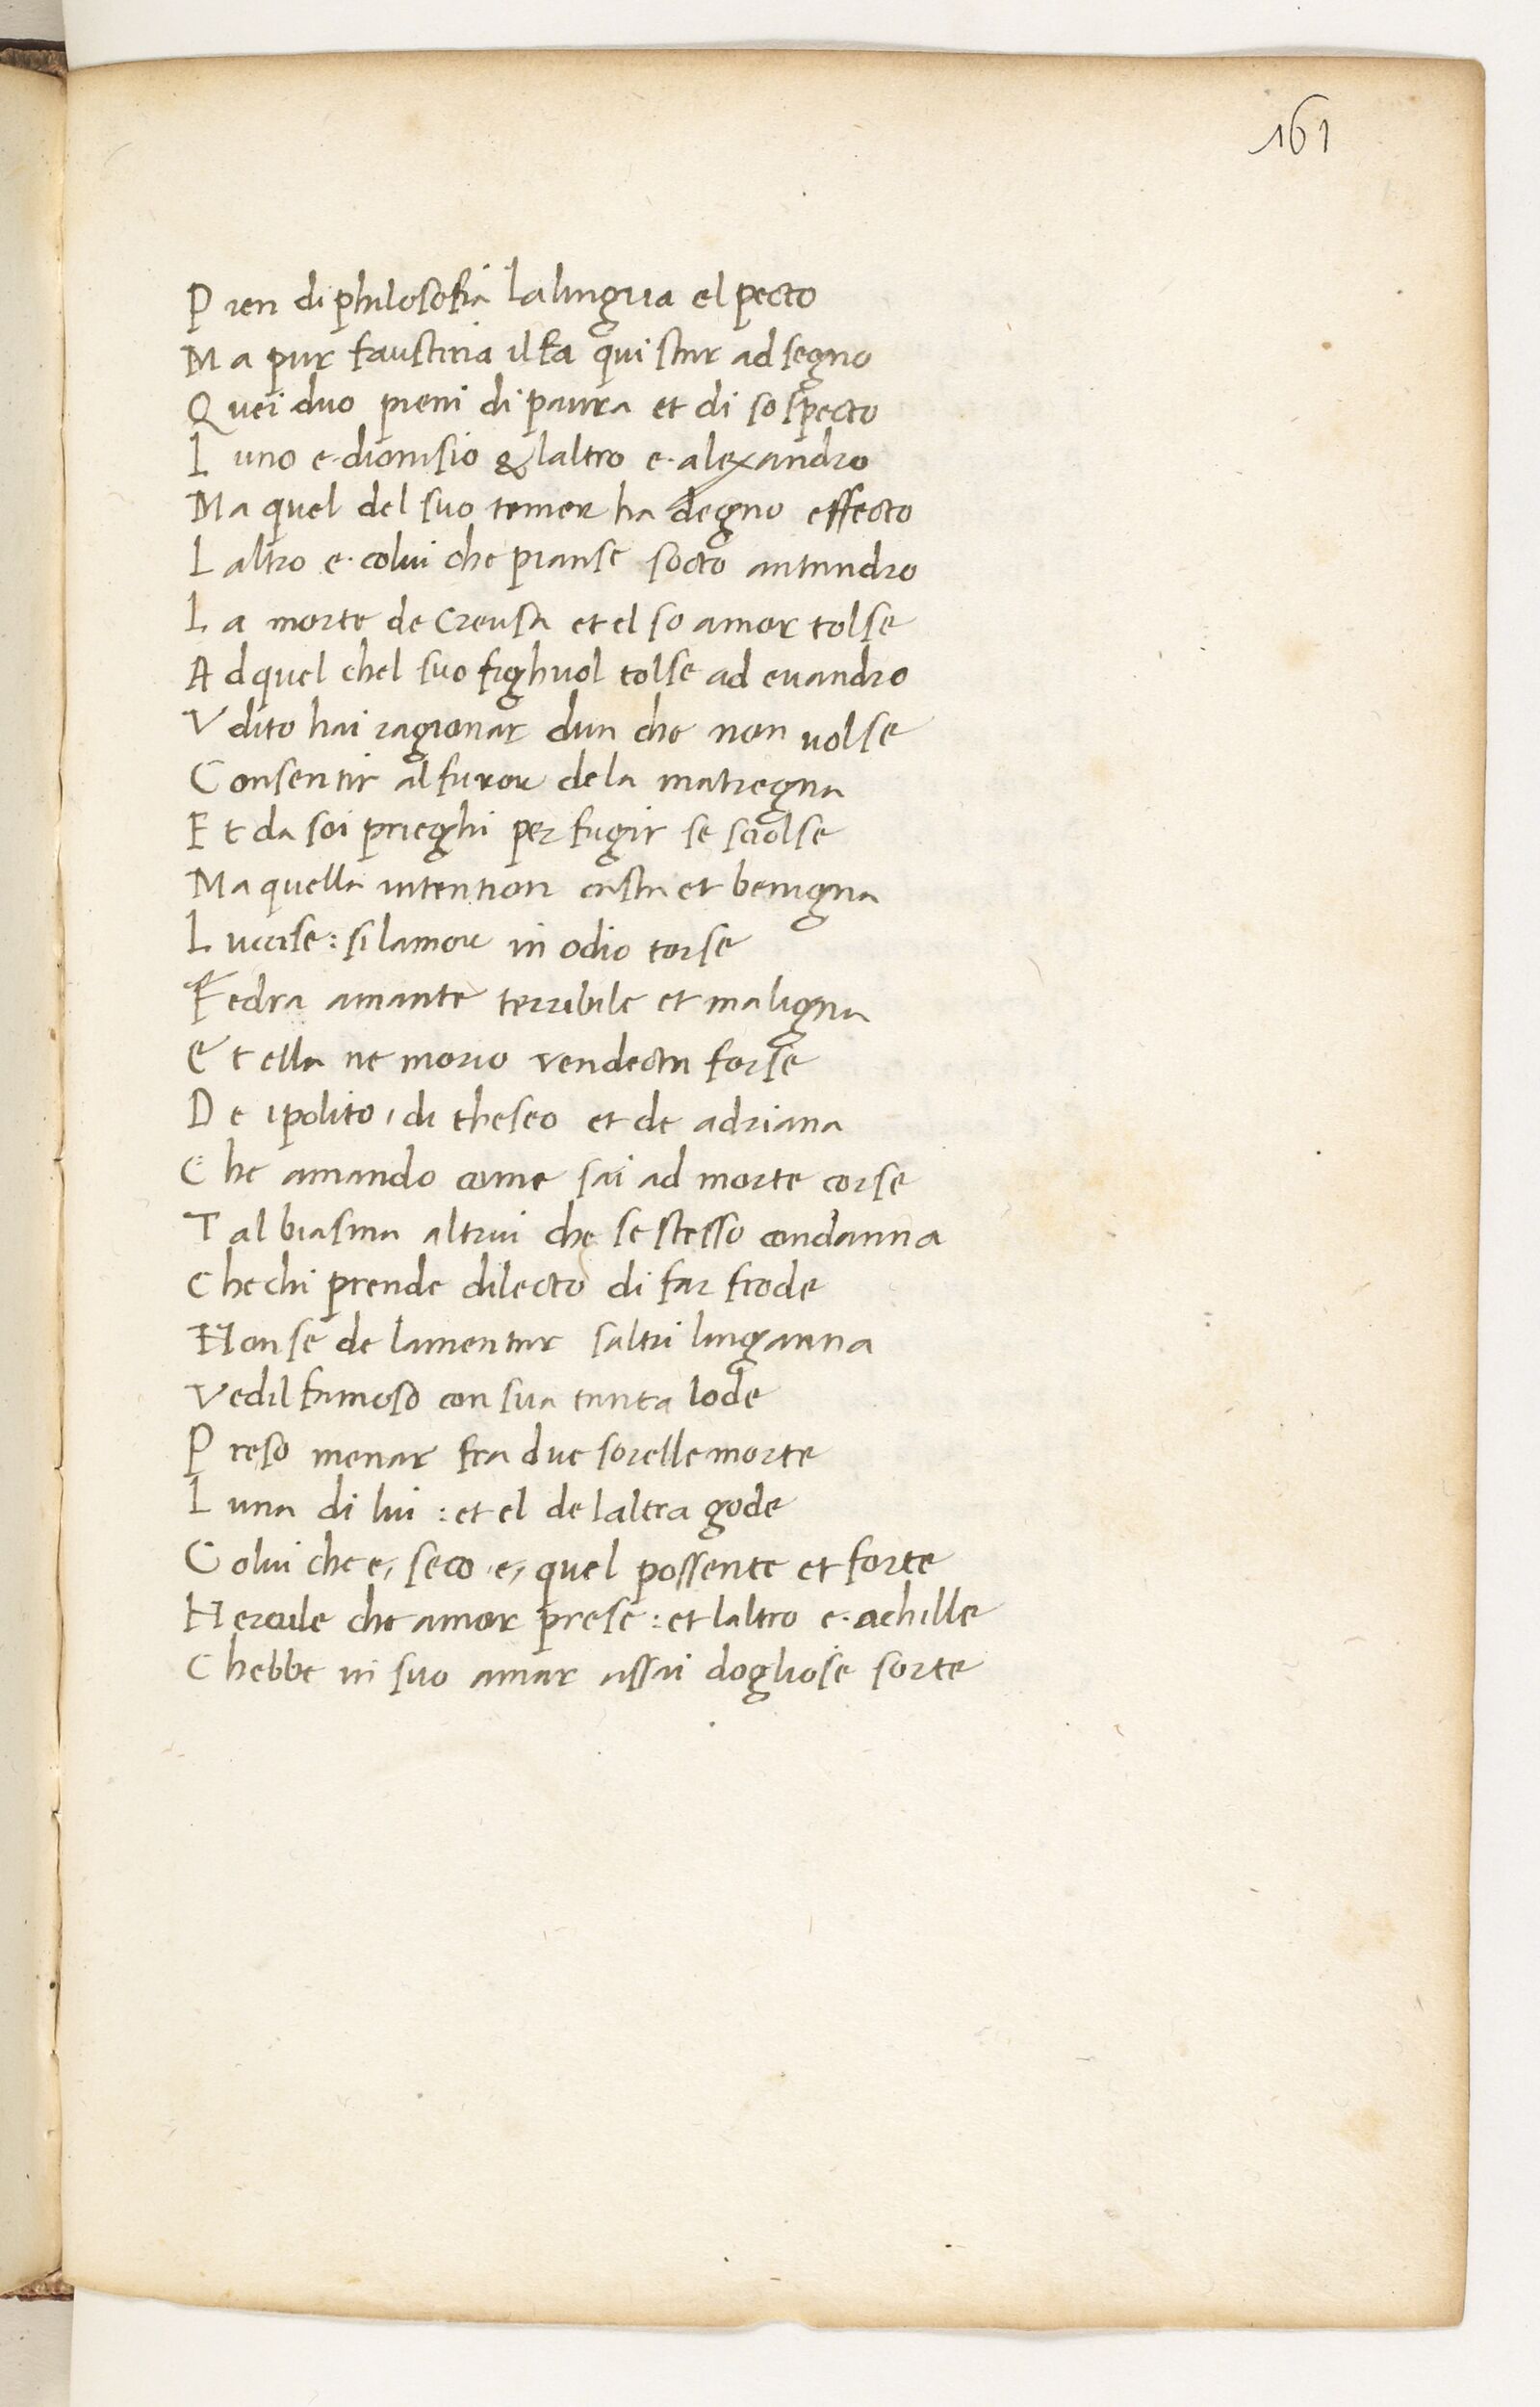 161
Pien di philosofia la lingua el pecto
Ma pur faustina il fa qui star ad segno
Quei duo pieni di paura et di sospecto
Luno e. dionisio & laltro e. alexandro
Ma quel del suo temer ha degno effecto
Laltro e. colui che pianse socto antandro
La morte de Creusa et el so amor tolse
Ad quel chel suo figliuol tolse ad euandro
Vdito hai ragionar dun che non uolse
Consentir al furor de la matregna
Et da soi prieghi per fugir se sciolse
Ma quella intention casta et benigna
Luccise: si lamor in odio torse
Fedra amante terribile et maligna
Et ella ne morio vendecta forse
De ipolito, di theseo et de adriana
Che amando come sai ad morte corse
Tal biasma altrui che se stesso condanna
Che chi prende dilecto di far frode
Non se de lamentar saltri linganna
Vedil famoso con sua tanta lode
Preso menar fra due sorelle morte
Luna di lui: et el de laltra gode
Colui che e, seco e, quel possente et forte
Hercule che amor prese: et laltro e. achille
Chebbe in suo amar assai dogliose sorte